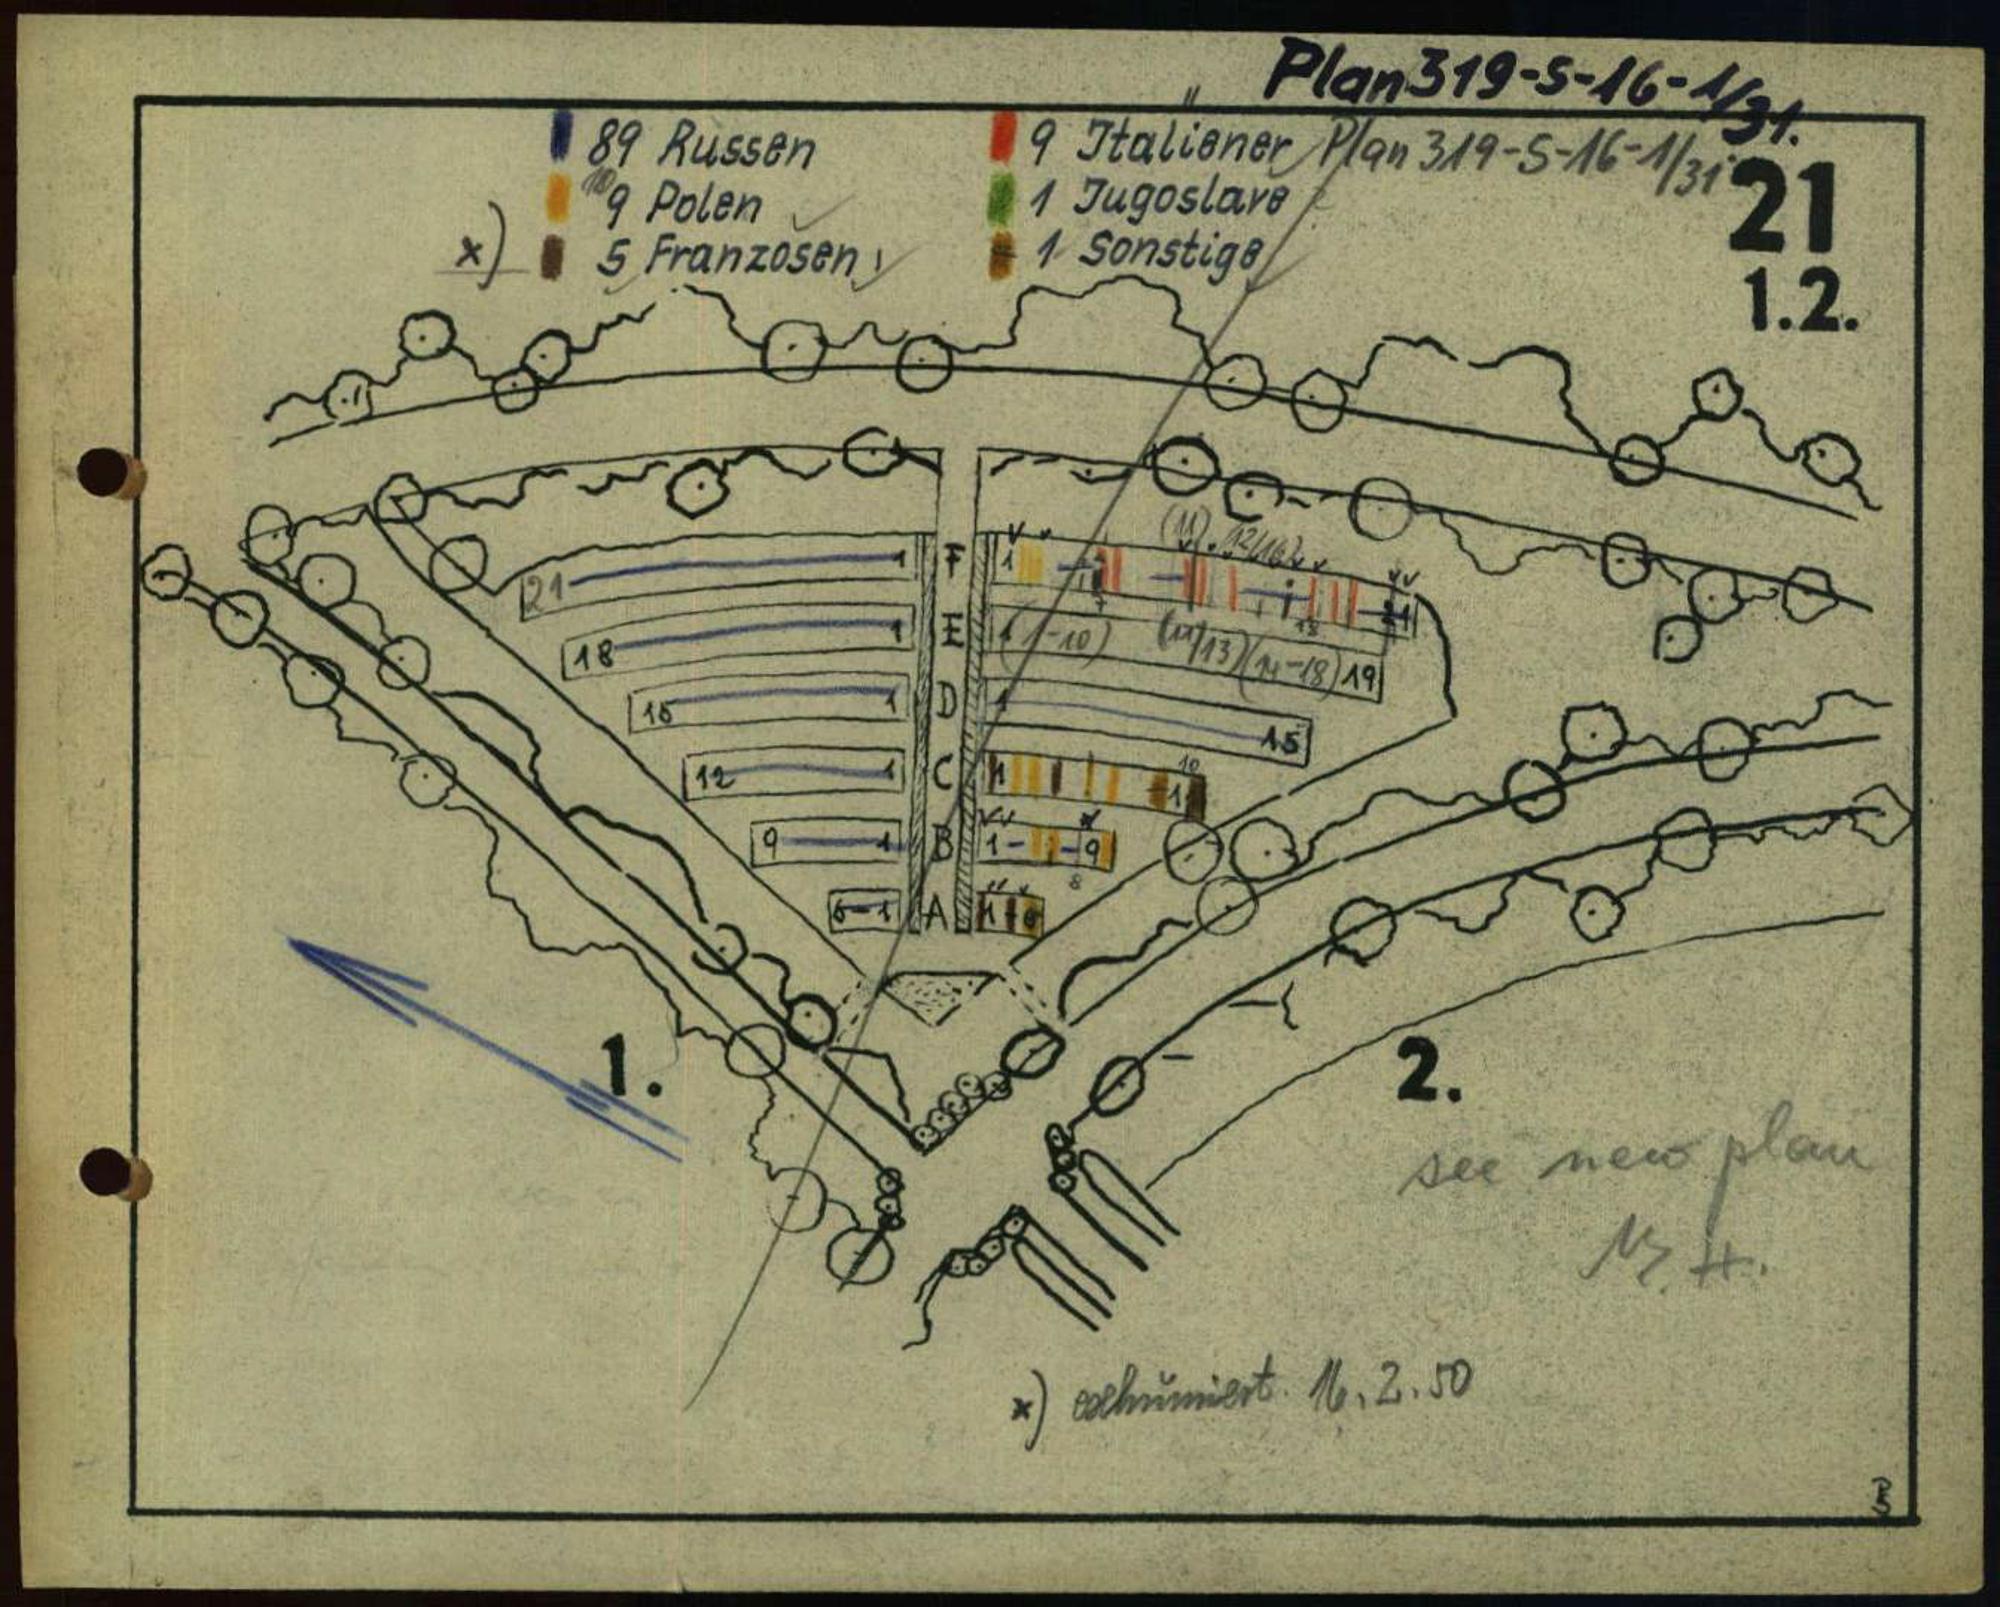 Plan 319-S-16-1/31.
89 Russen
9 Italiener
Plan 319-S-16-1/31
21
10 9 Polen
1 Jugoslave
x) 5 Franzosen
1 Sonstige
1.2.
(11) 12/16)
21 1 F 1 21
18 1 E 1 (1-10) (11/13) (14-18) 19
15 1 D 1 15
12 1 C 1 10
9 1 B 1 - 9
8
6-1 A 1-6
1.
2.
see new plan
x) exhumiert. 16.2.50